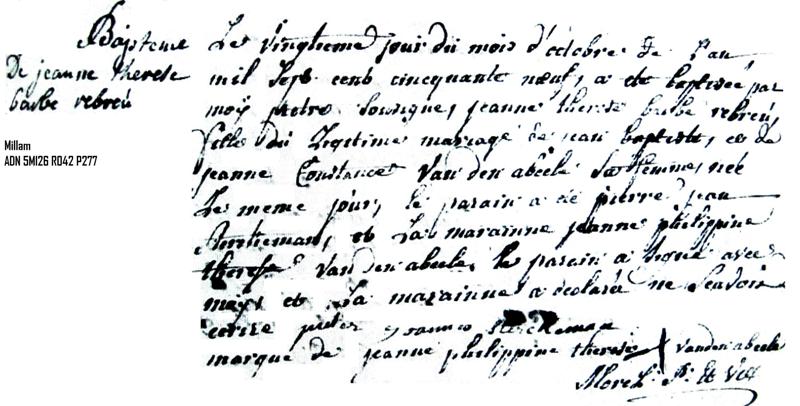 Bapteme
De jeanne therese
barbe rebreu
Millam
ADN 5MI26 R042 P277
Le vingtieme jour du mois d'octobre de l'an
mil sept cent cincquante neuf, a eté baptisée par
moy pretre soussigné, jeanne therese barbe rebreu,
fille du Legitime mariage de jean baptiste, et de
jeanne Constance Vanden abeele sa femme, née
Le meme jour, le parain a eté pierre jean
et La marainne jeanne philippine
therese Vanden abeele, le parain a signé avec
moy, et La marainne a declaré ne scavoir
ecrire pieter joannes
marque de jeanne philippine therese vanden abeele